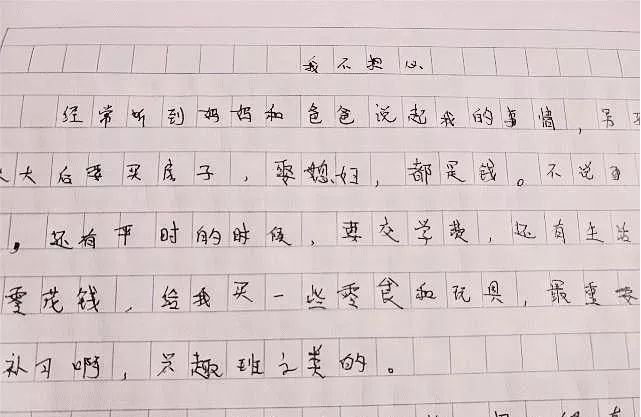 我不担心
经常听到妈妈和爸爸说起我的事情，
大后要买房子，娶媳妇，都是钱。不说
，还有平时的时候，要交学费，还有生活
零花钱，给我买一些零食和玩具，最重要
补习啊，兴趣班之类的。